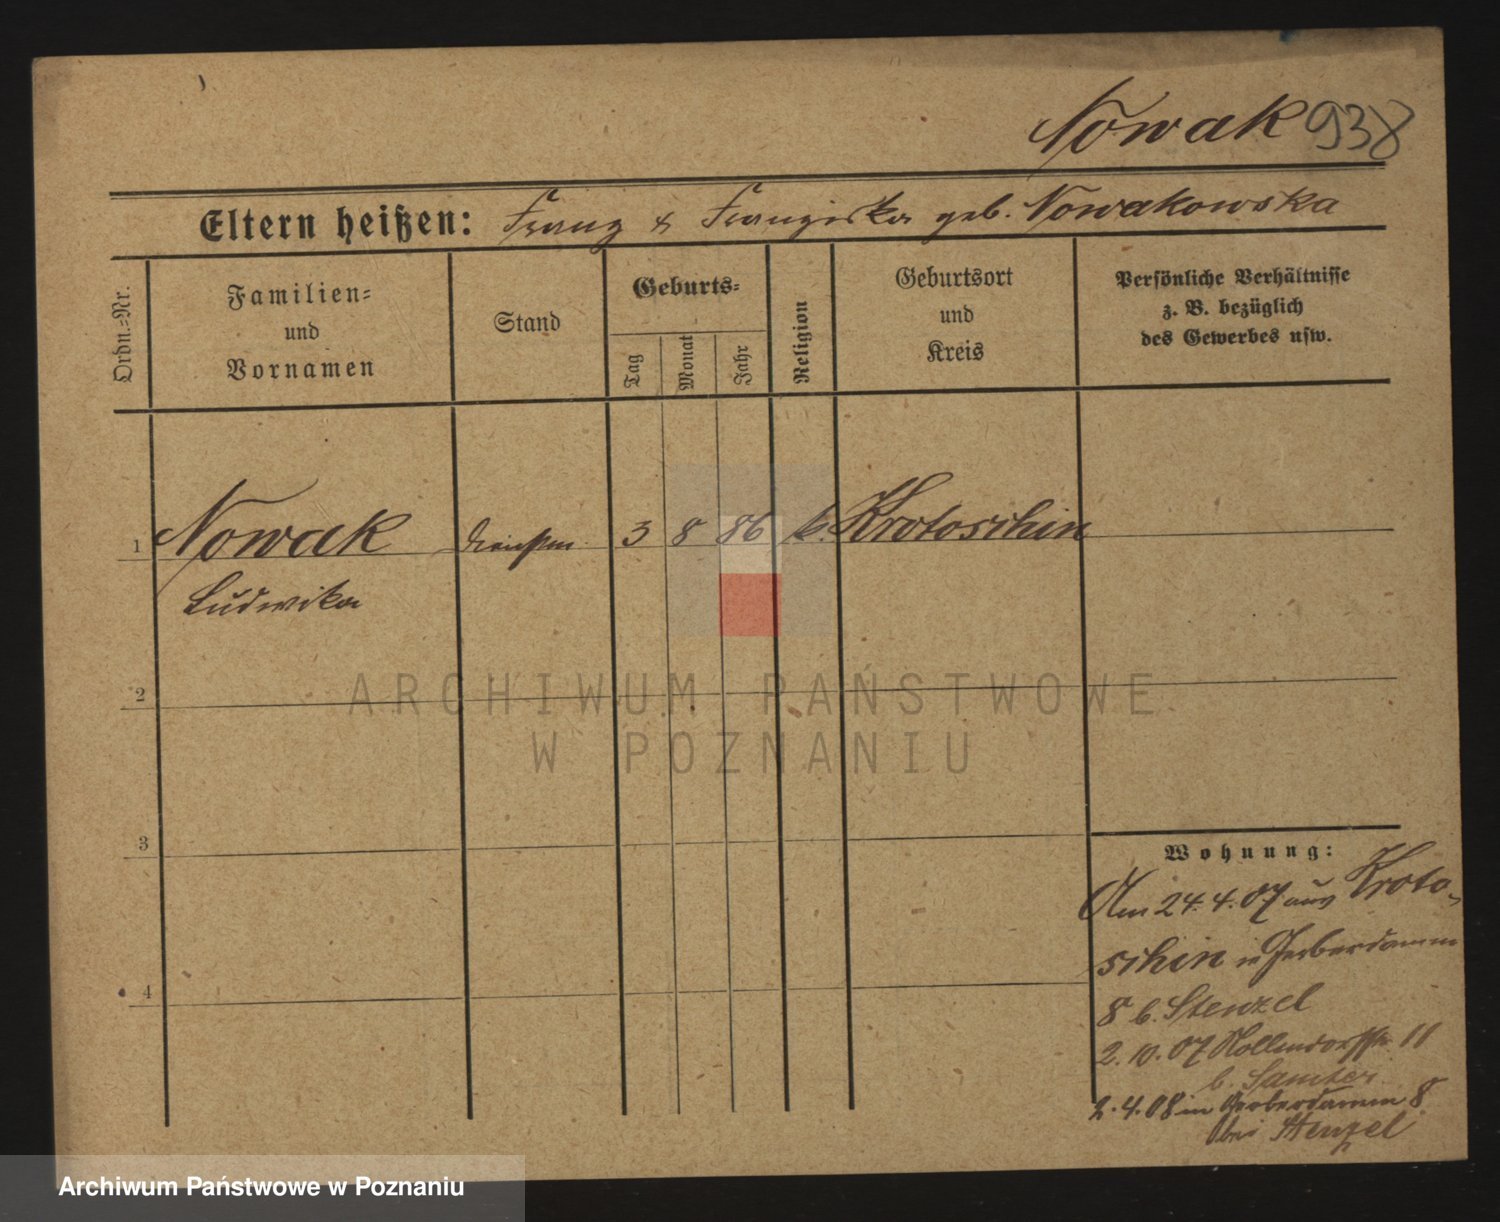 Nowak 938
Eltern heißen: Franz & Franziska geb. Nowakowska
Ordn.=Nr.
Familien=
und
Vornamen
Stand
Geburts=
Tag
Monat
Jahr
Religion
Geburtsort
und
Kreis
Persönliche Verhältnisse
z. B. bezüglich
des Gewerbes usw.
1 Nowak 3 8 86 k. Krotoschin
Ludwika
2
3
4
Wohnung:
Am 24.4.07 aus Kroto-
schin in Gerberdamm
8 b. Stenzel
2.10.07 11
b. Samter
2.4.08 in Gerberdamm 8
bei Stenzel
ARCHIWUM PAŃSTWOWE
W POZNANIU
Archiwum Państwowe w Poznaniu